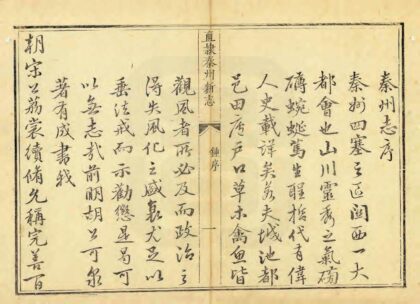 秦州志序
秦州四塞之區關西一大
都會也山川靈秀之氣磅
礴蜿蜒篤生聖哲代有偉
人史載詳矣若夫城池都
邑田產戶口草木禽魚皆
直隸秦州新志
鍾序
一
觀風者所必及而政治之
得失風化之盛衰尤足以
垂法戒而示勸懲是烏可
以無志哉前明胡公可泉
著有成書我
朝宋公荔裳續脩允稱完善百